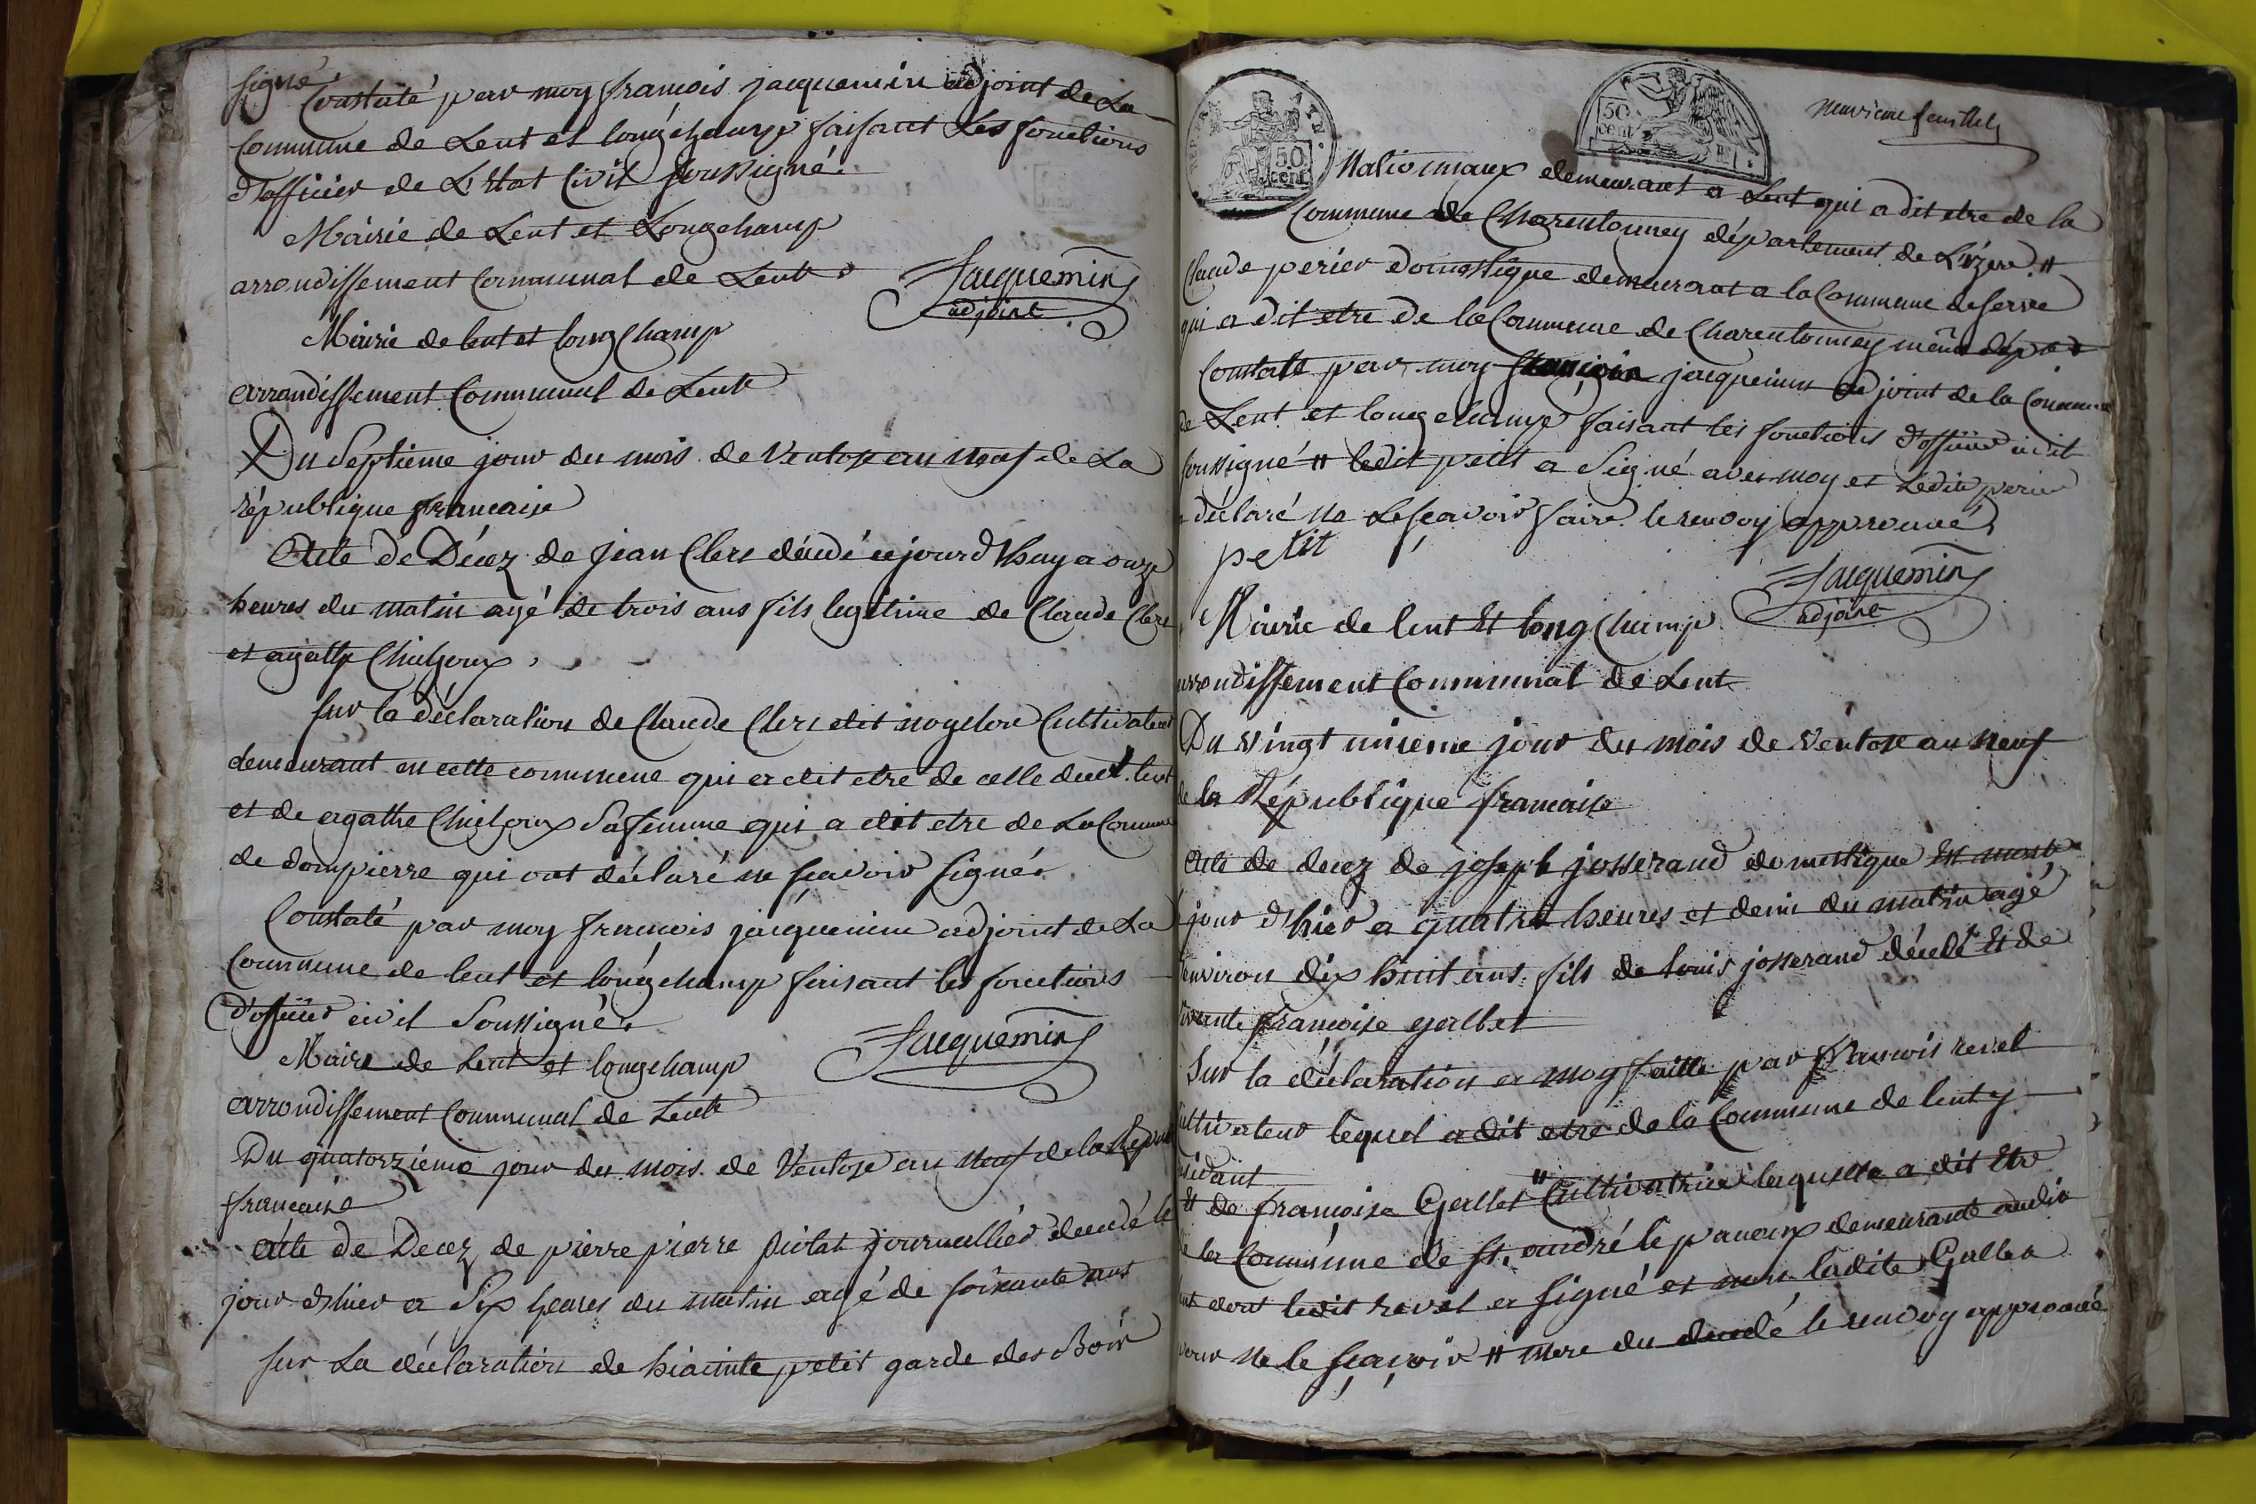 signé
Constaté par moy françois jacquemin adjoint de La
Commune de Lent et longchamp faisant Les fonctions
d'officier de L'Etat Civil soussigné.
Mairie de Lent et Longchamp
arrondissement Communal de Lent
Jacquemin
adjoint
Mairie de lent et long Champ
arrondissement Communal de Lent
Du Septieme jour du mois de Ventose an neuf de La
république francaise
Acte de Décez de Jean Clerc décédé cejourd'huy a onze
heures du matin agé de trois ans fils legitime de Claude Clerc
et agathe
Sur la déclaration de Claude Clerc dit Cultivateur
demeurant en cette commune qui a dit etre de celle dud. lent
et de agathe sa femme qui a dit etre de La Commune
de dompierre qui ont déclaré ne sçavoir signé.
Constaté par moy françois jacquemin adjoint de La
Commune de lent et longchamp faisant les fonctions
d'officier civil Soussigné.
Jacquemin
Maire de Lent et longchamp
arrondissement Communal de Lent
Du quatorzième jour du mois de Ventose an neuf de la
francaise
Acte de Decez de pierre pierre journallier decedé le
jour d'hier a Six heures du matin agé de soixante ans
sur La déclaration de hiacinte petit garde des Bois
neuvieme feuillet
50 cent
50 cent
Nationnaux demeurant a Lent qui a dit etre de la
Commune de Charentonney département de L'izere. #
Claude perier domestique demeurant a la Commune de Servie
qui a dit etre de la Commune de Charentonney même
Constaté par moy françois jacquemin adjoint de la Commune
de Lent et longchamp faisant les fonctions d'officier civil
soussigné # ledit petit a Signé avec moy et Ledit perier
a déclaré ne Lesçavoir faire. le renvoy approuvé
petit
Jacquemin
adjoint
Mairie de lent Et long Champ
arrondissement Communal de Lent
Du vingt unieme jour du mois de ventose an neuf
de la République francaise
Acte de decez de joseph josserand domestique Est mort
jour d'hier a quatre heures et demi du matin agé
environ dix huit ans fils de louis josserand décédé Et de
vivante françoise gallet
Sur la déclaration a moy faitte par françois revel
cultivateur lequel a dit etre de la Commune de lent y
résidant
Et de françoise Gallet # Cultivatrice laquelle a dit Etre
de la Commune de St. andré le panoux demeurante audit
lent dont ledit revel a signé et non ladite Gallet
pour ne le sçavoir # mere du decedé le renvoy approuvé